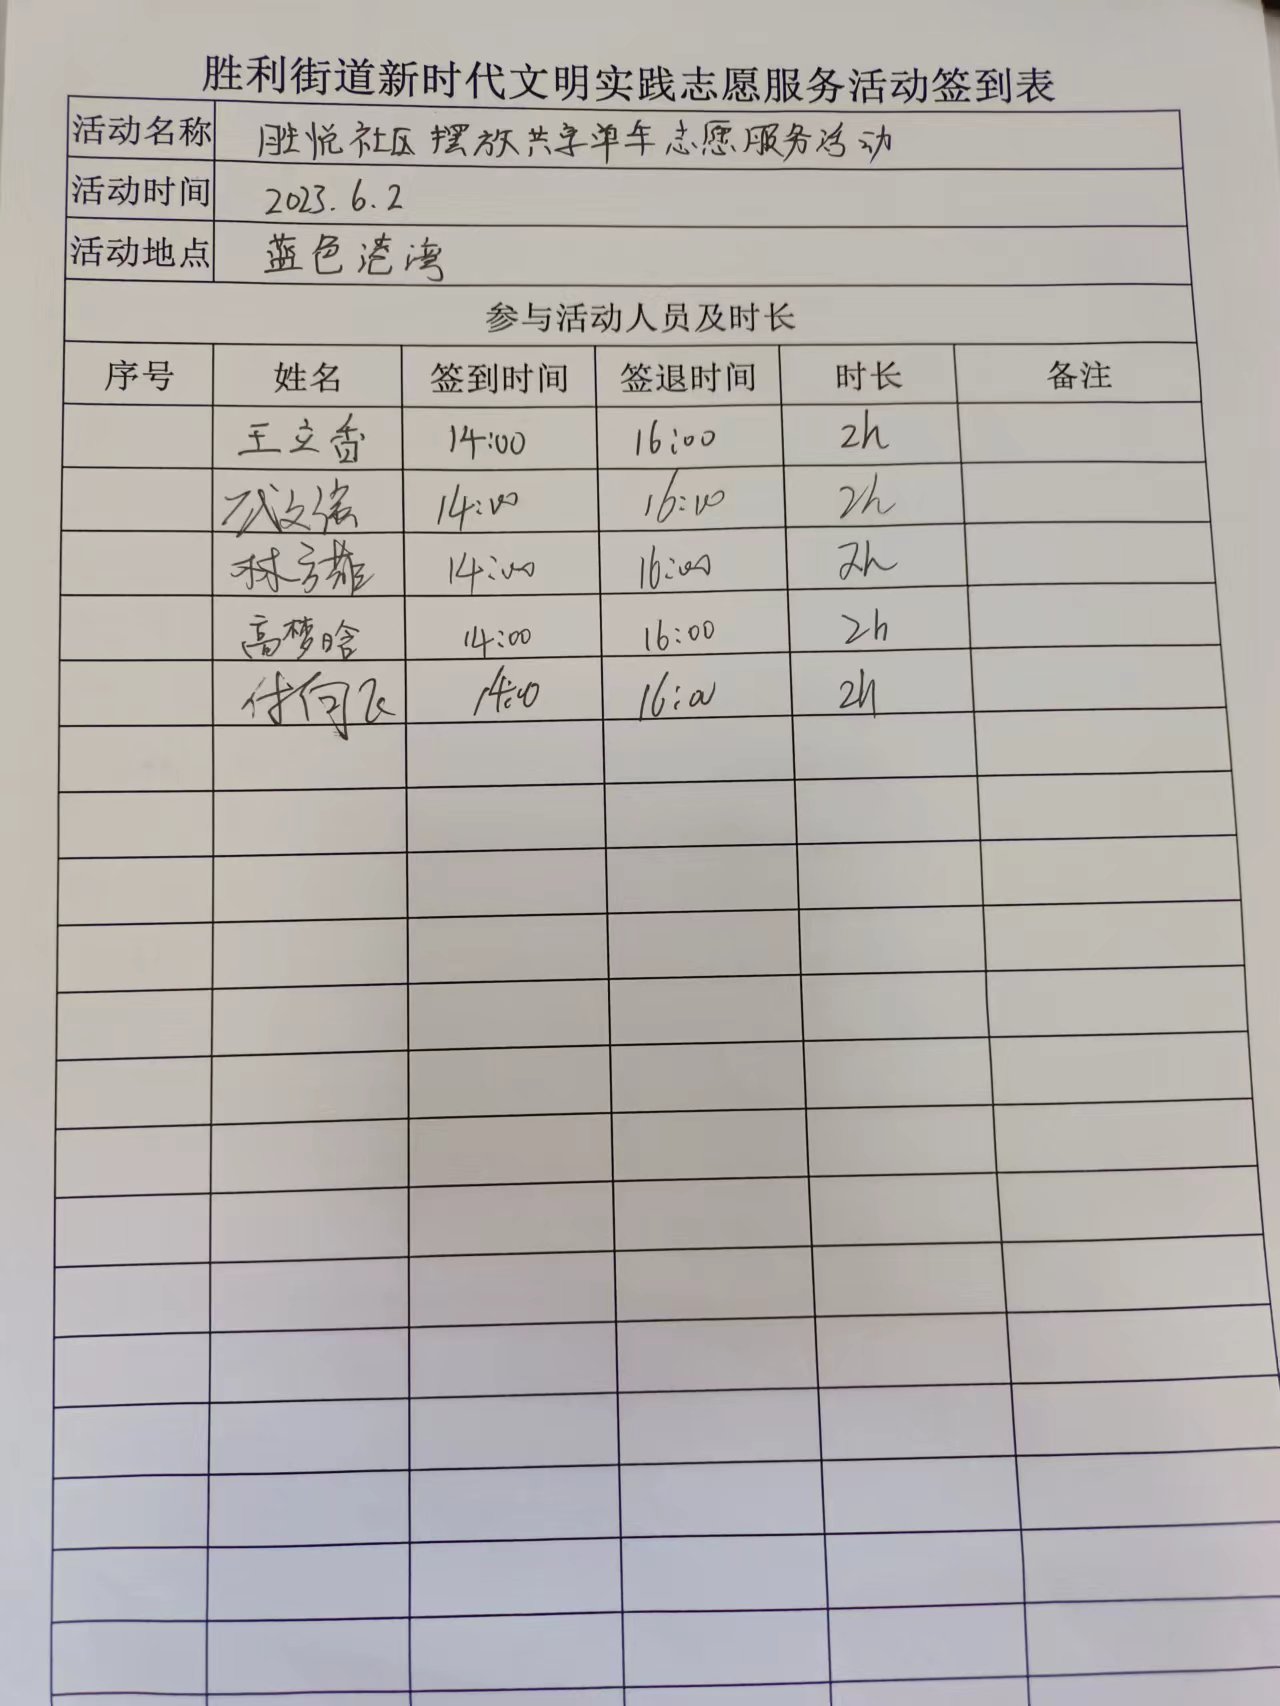 胜利街道新时代文明实践志愿服务活动签到表
活动名称 胜悦社区摆放共享单车志愿服务活动
活动时间 2023.6.2
活动地点 蓝色港湾
参与活动人员及时长
序号 姓名 签到时间 签退时间 时长 备注
王立香 14:00 16:00 2h
14:00 16:00 2h
林 14:00 16:00 2h
高梦晗 14:00 16:00 2h
付 飞 14:00 16:00 2h